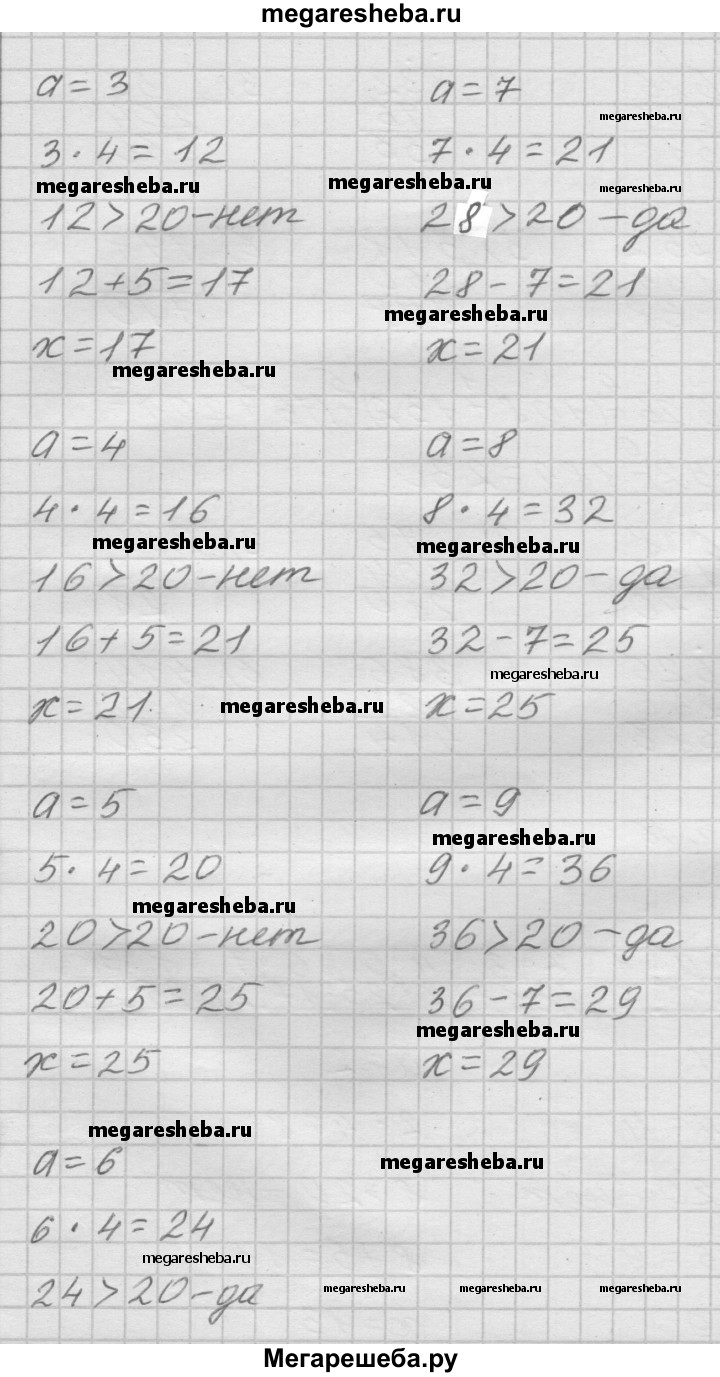 megaresheba.ru
a = 3
3 · 4 = 12
megaresheba.ru
12 > 20 - нет
12 + 5 = 17
x = 17
megaresheba.ru
a = 4
4 · 4 = 16
megaresheba.ru
16 > 20 - нет
16 + 5 = 21
x = 21
megaresheba.ru
a = 5
5 · 4 = 20
megaresheba.ru
20 > 20 - нет
20 + 5 = 25
x = 25
megaresheba.ru
a = 6
6 · 4 = 24
megaresheba.ru
24 > 20 - да
a = 7
megaresheba.ru
7 · 4 = 21
megaresheba.ru
megaresheba.ru
28 > 20 - да
28 - 7 = 21
megaresheba.ru
x = 21
a = 8
8 · 4 = 32
megaresheba.ru
32 > 20 - да
32 - 7 = 25
megaresheba.ru
x = 25
a = 9
megaresheba.ru
9 · 4 = 36
36 > 20 - да
36 - 7 = 29
megaresheba.ru
x = 29
megaresheba.ru
megaresheba.ru
megaresheba.ru
megaresheba.ru
Мегарешеба.ру